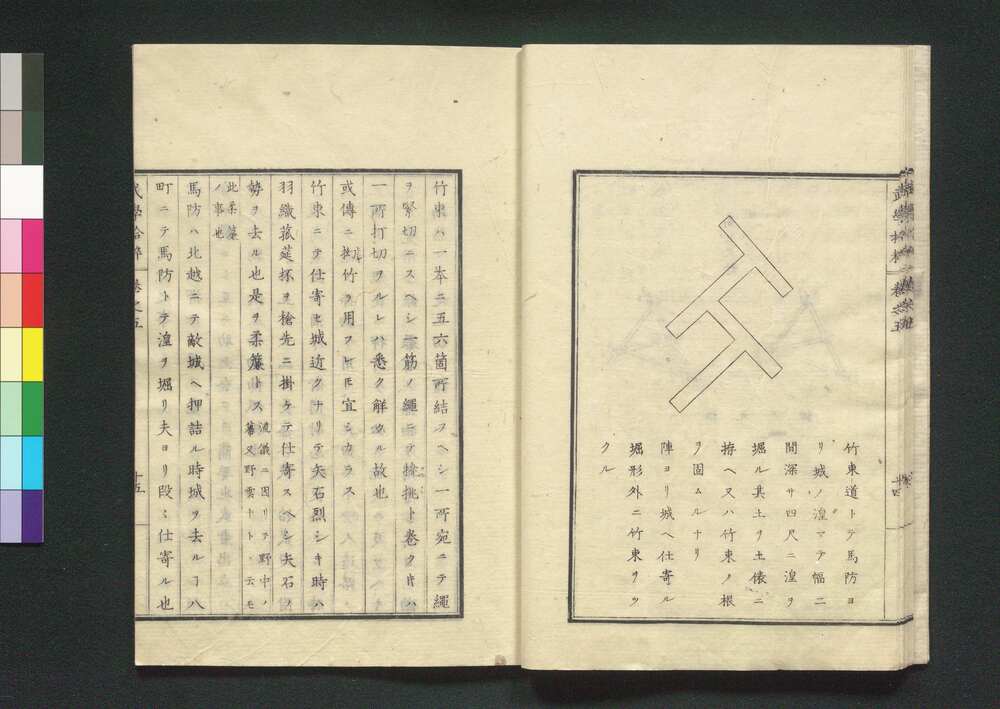 竹束道トテ馬防ヨ
リ城ノ湟マテ幅二
間深サ四尺ニ湟ヲ
堀ル其土ヲ土俵ニ
拵ヘ又ハ竹束ノ根
ヲ固ムルナリ
陣ヨリ城ヘ仕寄ル
堀形外ニ竹束ヲツ
クル
竹束ハ一本ニ五六箇所結フヘシ一所宛ニテ縄
ヲ緊切ニスヘシ一筋ノ縄ニテ捻挑ト巻タキハ
一所打切ヲルレハ悉ク解クル故也
或傳ニ挫竹ヲ用フトモ宜シカラス
竹束ニテ仕寄ヒ城近クナリテ矢石烈シキ時ハ
羽織菰莚抔ヲ槍先ニ掛ケテ仕寄スヘシ矢石ノ
勢ヲ去ル也是ヲ柔簾トス
流儀ニ因リテ野中ノ
幕又野雲トトモ云モ
此柔簾
ノ事也
馬防ハ北越ニテ敵城ヘ押詰ル時城ヲ去ルヿ八
町ニテ馬防トテ湟ヲ堀リ夫ヨリ段々仕寄ル也
巻之五
十五